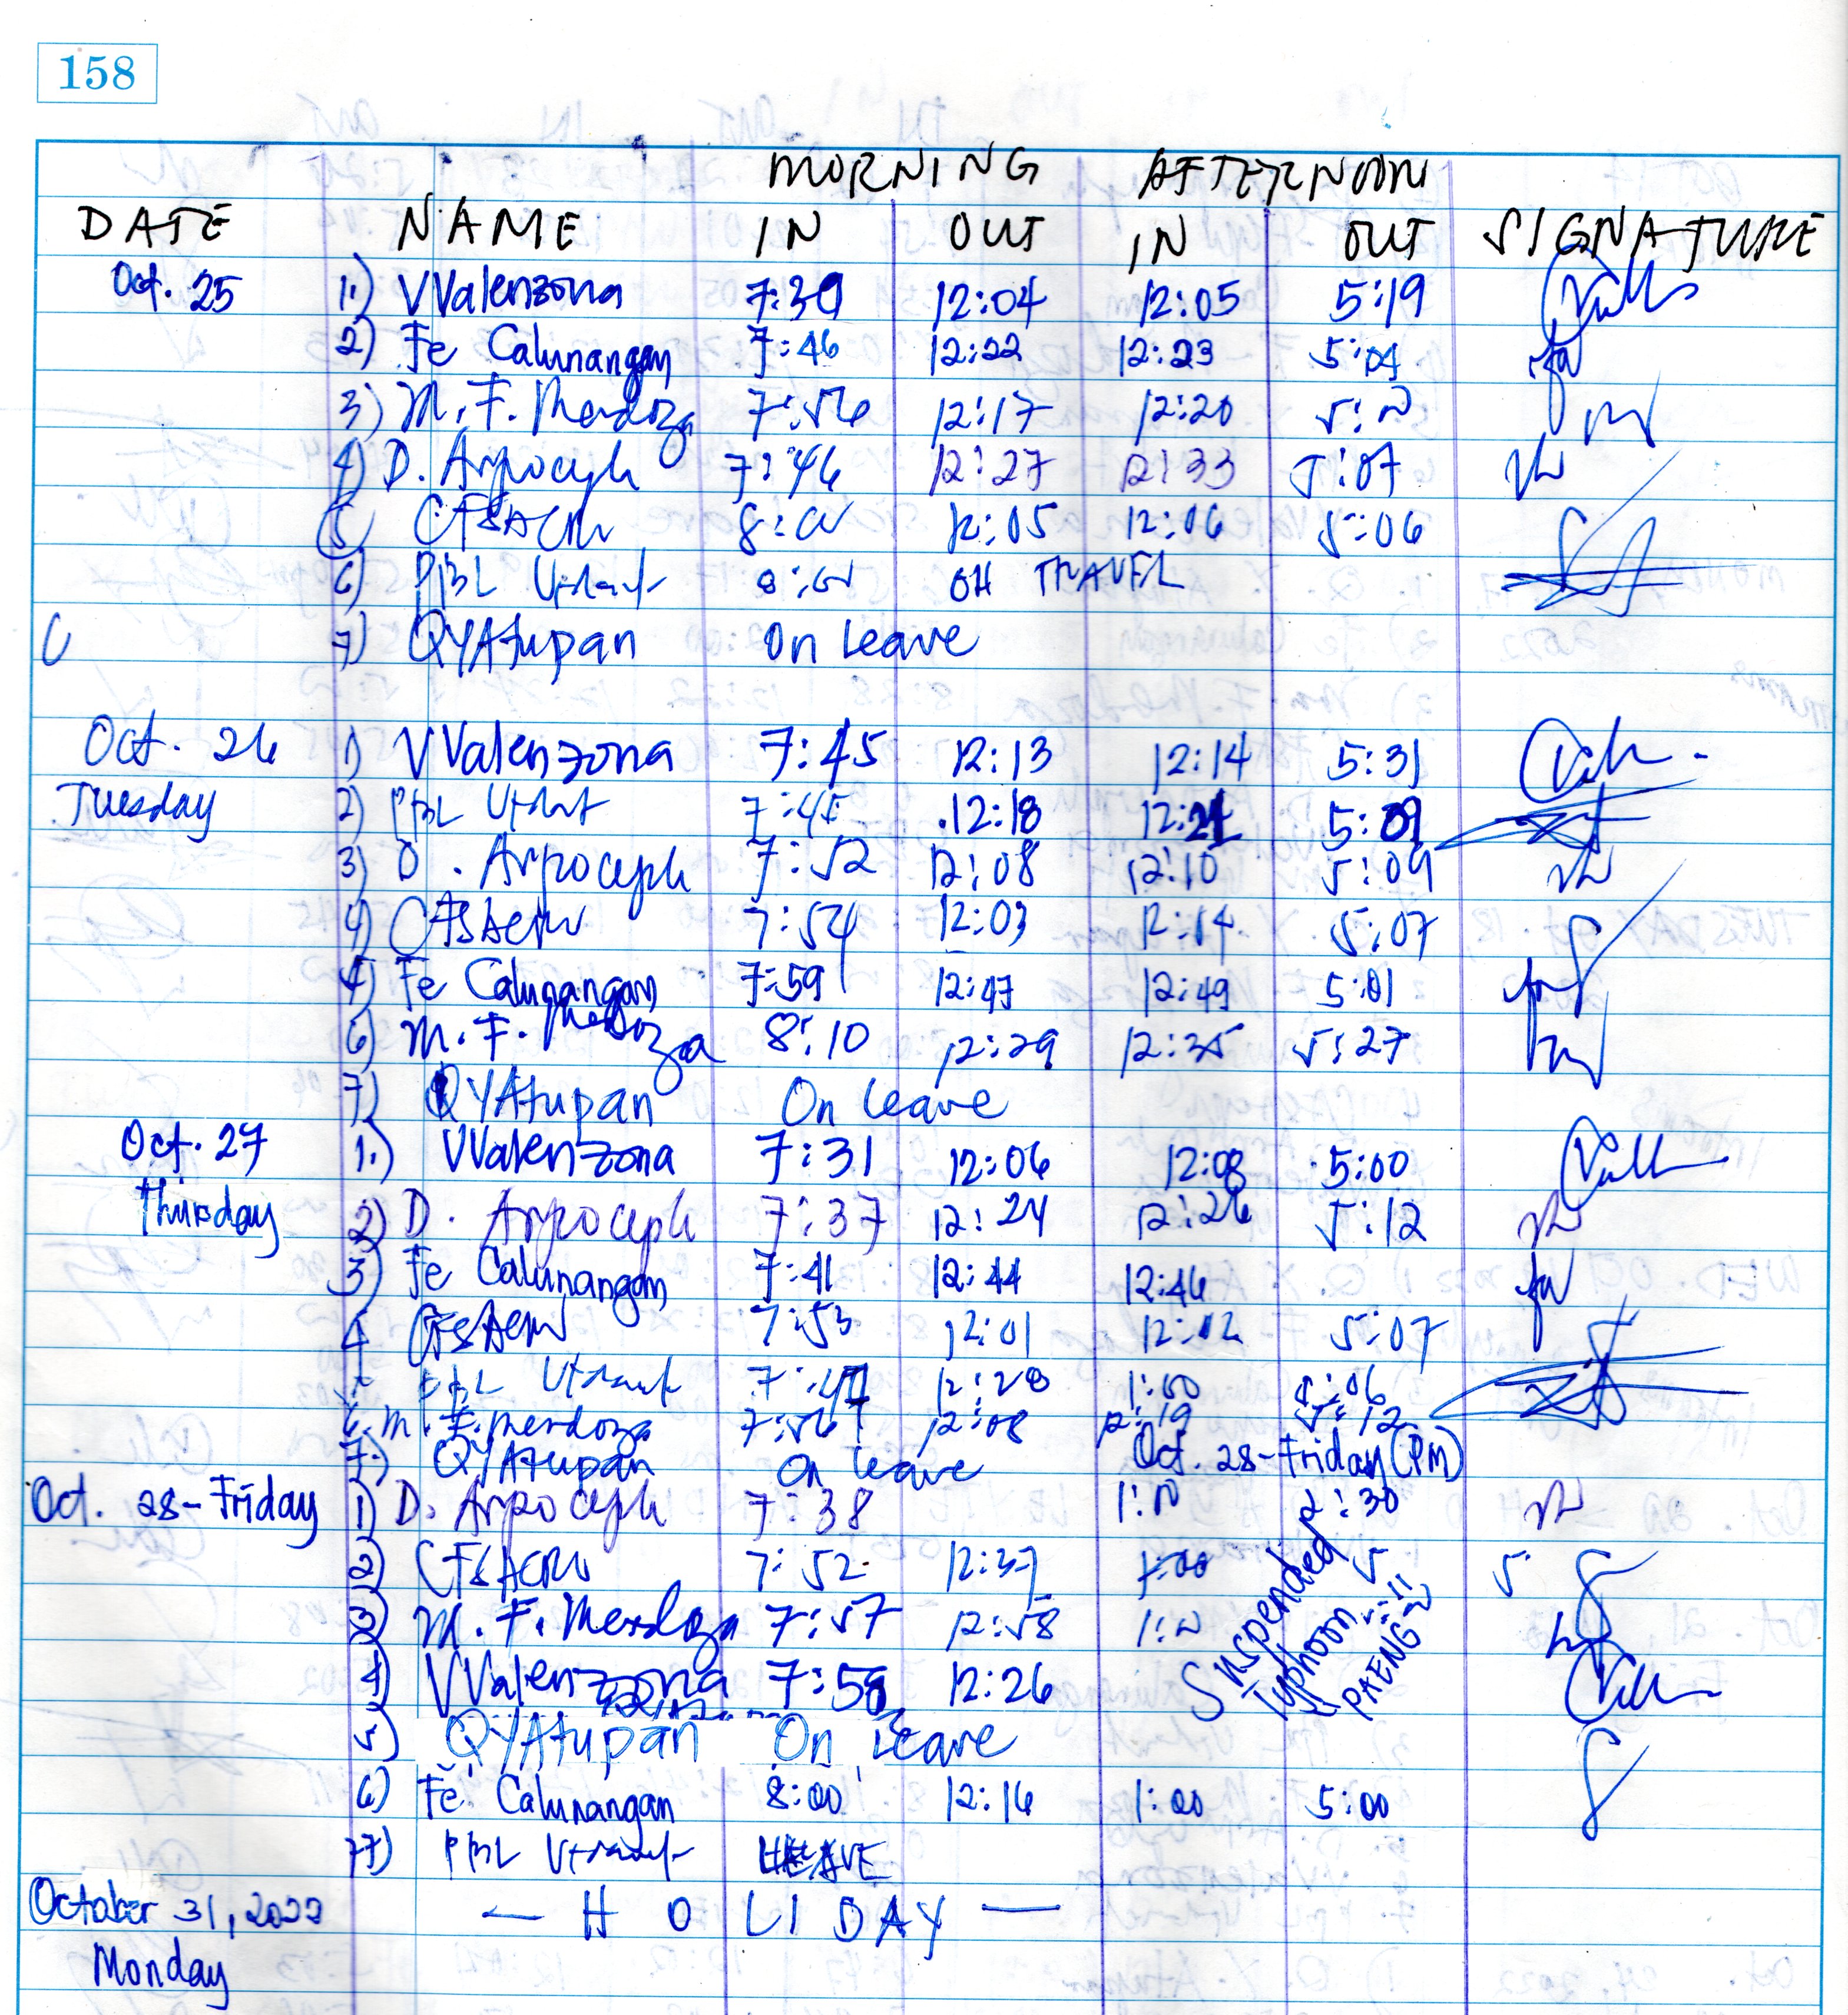 158
MORNING AFTERNOON
DATE NAME IN OUT IN OUT SIGNATURE
Oct. 25 1.) VValenzona 7:39 12:04 12:05 5:19
2) Fe Calunangan 7:46 12:22 12:23 5:04
3) M. F. Mendoza 7:56 12:17 12:20
4) D. Arpoceph 7:46 12:27 12:33 5:07
5 CFSACRW 12:05 12:06 5:06
6) PBL ON TRAVEL
7) QYAtupan On Leave
Oct. 26 1) VValenzona 7:45 12:13 12:14 5:31
Tuesday 2) PBL 7:45 12:18 12:21 5:09
3) D. Arpoceph 7:52 12:08 12:10 5:09
4) 7:54 12:03 12:14 5:07
Fe Calunangan 7:59 12:47 12:49 5:01
6) M. F. Mendoza 8:10 12:29 12:35 5:27
7) QYAtupan On leave
Oct. 27 1.) VValenzona 7:31 12:06 12:08 5:00
Thursday 2) D. Arpoceph 7:37 12:24 12:26 5:12
3) Fe Calunangan 7:41 12:44 12:46
4 7:53 12:01 12:02 5:07
PBL 7:47 12:28 1:00 5:06
6. M. F. Mendoza 7:56 12:08 12:19 5:12
7.) QYAtupan On leave Oct. 28-Friday (PM)
Oct. 28-Friday 1) D. Arpoceph 7:38 2:30
2) CFSACRW 7:52 12:37 1:00
3) M. F. Mendoza 7:57 12:58
4) VValenzona 7:58 12:26
Suspended
Typhoon
PAENG
5) QYAtupan On Leave
6) Fe Calunangan 8:00 12:16 1:00 5:00
7) PBL LEAVE
October 31, 2022 — HOLIDAY —
Monday